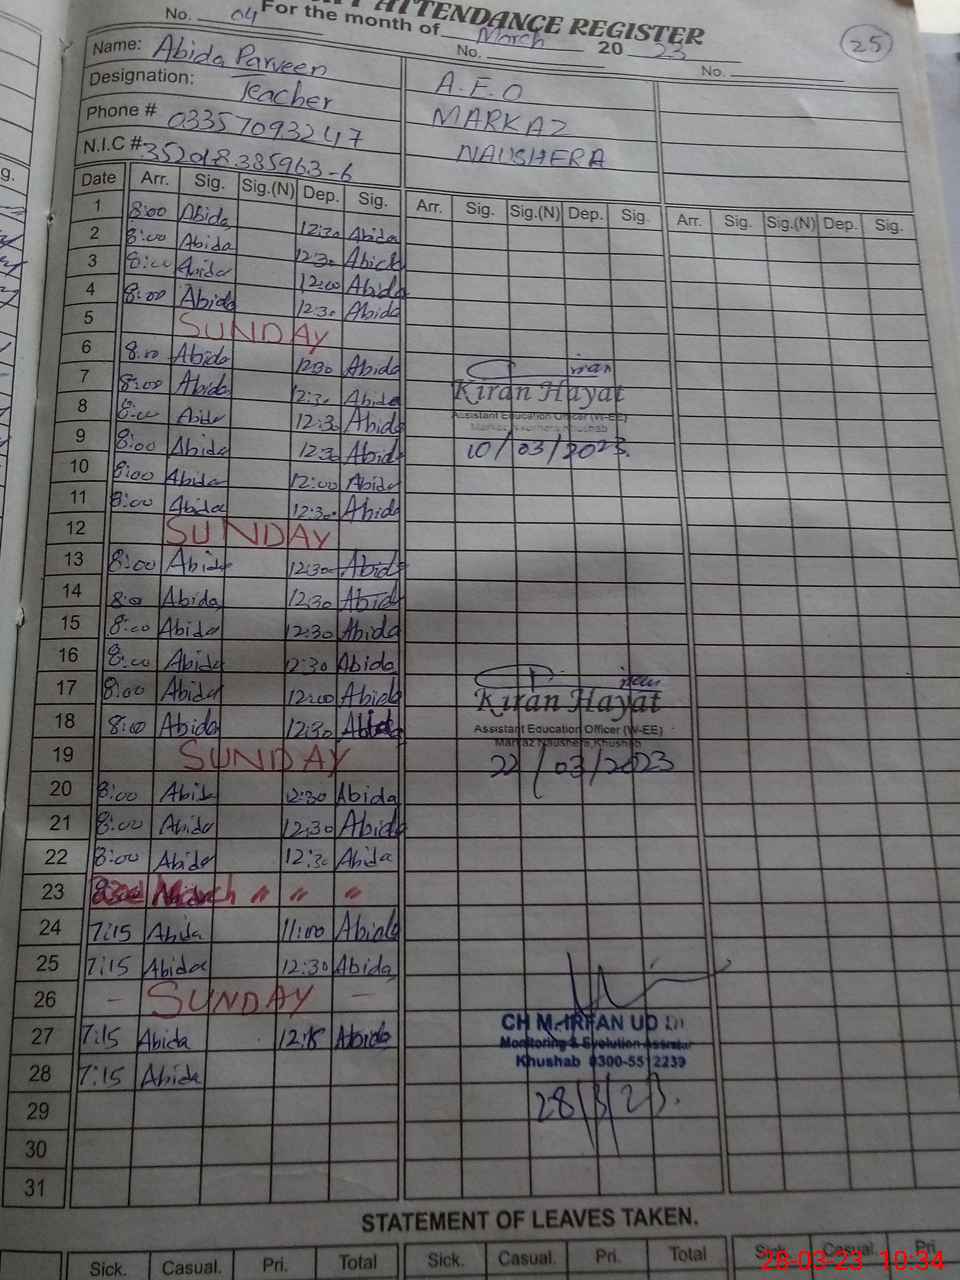 ATTENDANCE REGISTER
No. 04 For the month of March 20 23
No. No.
25
Name: Abida Parveen
Designation: Teacher
Phone # 03357093247
N.I.C #
A.E.O
MARKAZ
NAUSHERA
Date Arr. Sig. Sig.(N) Dep. Sig. Arr. Sig. Sig.(N) Dep. Sig. Arr. Sig. Sig.(N) Dep. Sig.
1 8:00 Abida 12:30 Abida
2 8:00 Abida 12:30 Abida
3 8:00 Abida 12:00 Abida
4 8:00 Abida 12:30 Abida
5 SUNDAY
6 8:00 Abida 12:30 Abida
7 8:00 Abida 12:30 Abida
8 8:00 Abida 12:30 Abida
9 8:00 Abida 12:30 Abida
10 8:00 Abida 12:00 Abida
11 8:00 Abida 12:30 Abida
12 SUNDAY
13 8:00 Abida 12:30 Abida
14 8:0 Abida 12:30 Abida
15 8:00 Abida 12:30 Abida
16 8:00 Abida 12:30 Abida
17 8:00 Abida 12:00 Abida
18 8:00 Abida 12:30 Abida
19 SUNDAY
20 8:00 Abida 12:30 Abida
21 8:00 Abida 12:30 Abida
22 8:00 Abida 12:30 Abida
23 March " " "
24 7:15 Abida 11:00 Abida
25 7:15 Abida 12:30 Abida
26 - SUNDAY -
27 7:15 Abida 12:15 Abida
28 7:15 Abida
29
30
31
Kiran Hayat
Assistant Education Officer (W-EE)
Markaz Naushera, Khushab
10/03/2023.
Kiran Hayat
Assistant Education Officer (W-EE)
Markaz Naushera, Khushab
22/03/2023
CH M. IRFAN UD DI
Monitoring & Evolution Assistar
Khushab 0300-55 2239
28/3/23.
STATEMENT OF LEAVES TAKEN.
Sick. Casual. Pri. Total Sick. Casual. Pri. Total Sick. Casual. Pri.
28-03-23 10:34